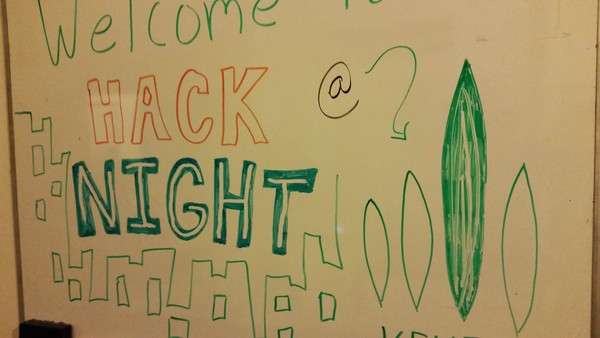 Welcome To
HACK
@
NIGHT